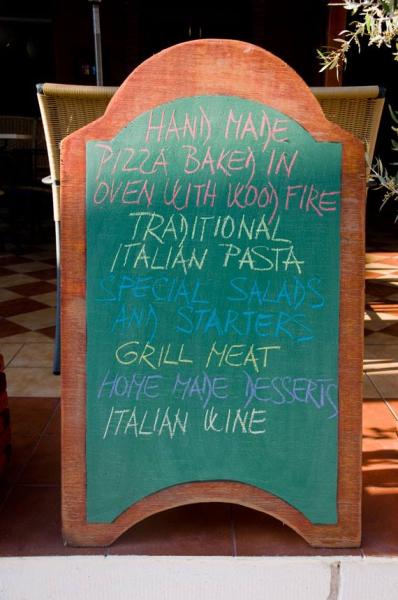 HAND MADE
PIZZA BAKED IN
OVEN WITH WOOD FIRE
TRADITIONAL
ITALIAN PASTA
SPECIAL SALADS
AND STARTERS
GRILL MEAT
HOME MADE DESSERTS
ITALIAN WINE